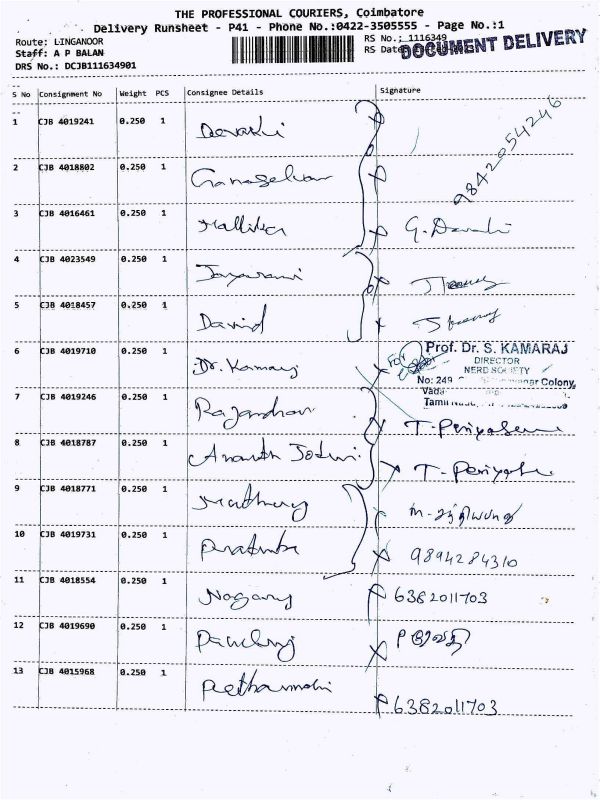 THE PROFESSIONAL COURIERS, Coimbatore
Delivery Runsheet - P41 - Phone No.:0422-3505555 - Page No.:1
Route: LINGANOOR
RS No.: 1116349
Staff: A P BALAN
RS Date
DOCUMENT DELIVERY
DRS No.: DCJB111634901
S No Consignment No Weight PCS Consignee Details Signature
1 CJB 4019241 0.250 1 Devaki
9842054246
2 CJB 4018802 0.250 1
3 CJB 4016461 0.250 1 Mallika G. Devaki
4 CJB 4023549 0.250 1 Jayarani
5 CJB 4018457 0.250 1 David
6 CJB 4019710 0.250 1 Dr. Kamaraj For Prof. Dr. S. KAMARAJ
DIRECTOR
NERD SOCIETY
No: 249 Colony,
Vada
7 CJB 4019246 0.250 1 Rajendran T. Periyasa
8 CJB 4018787 0.250 1 Ananth Jothi T. Periya
9 CJB 4018771 0.250 1
10 CJB 4019731 0.250 1 9894284310
11 CJB 4018554 0.250 1 Nagaraj 6382011703
12 CJB 4019690 0.250 1 P
13 CJB 4015968 0.250 1 6382011703